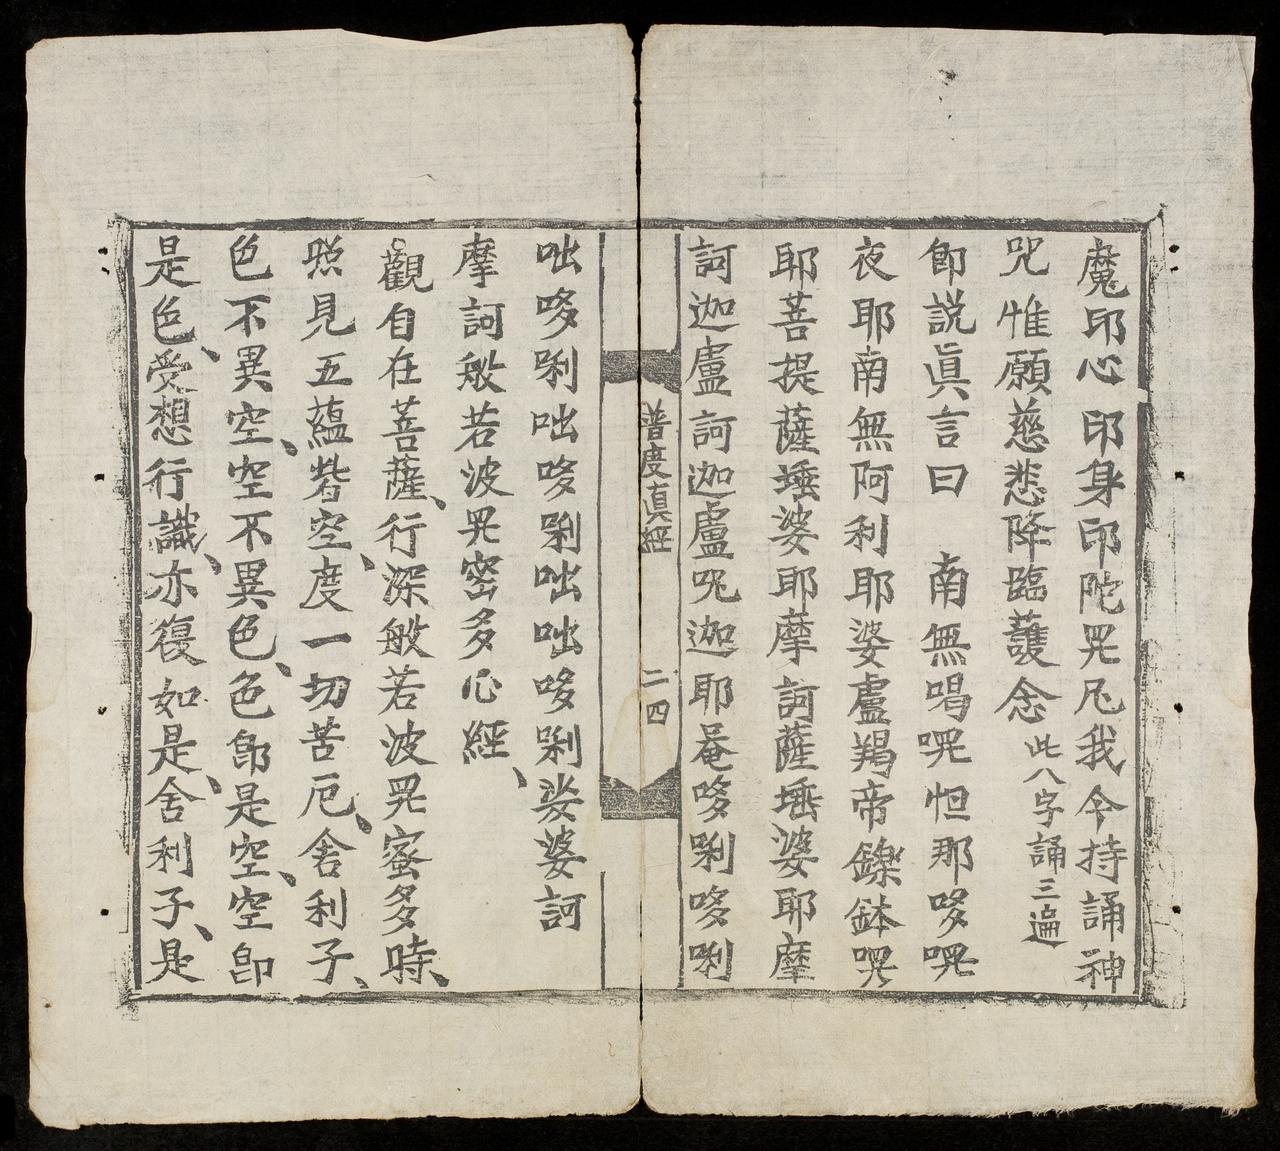 魔印心印身印陀羅尼我今持誦神
咒惟願慈悲降臨護念此八字誦三遍
卽説眞言曰　南無喝囉怛那哆囉
夜耶南無阿利耶婆盧羯帝鑠鉢囉
耶菩提薩埵婆耶摩訶薩埵婆耶摩
訶迦盧訶迦盧呪迦耶菴哆唎哆唎
普度真經
二四
咄哆唎咄哆唎咄咄哆唎娑婆訶
摩訶般若波羅密多心經、
觀自在菩薩、行深般若波羅蜜多時、
照見五蘊皆空、度一切苦厄、舍利子、
色不異空、空不異色、色卽是空、空卽
是色、受想行識、亦復如是、舍利子、是